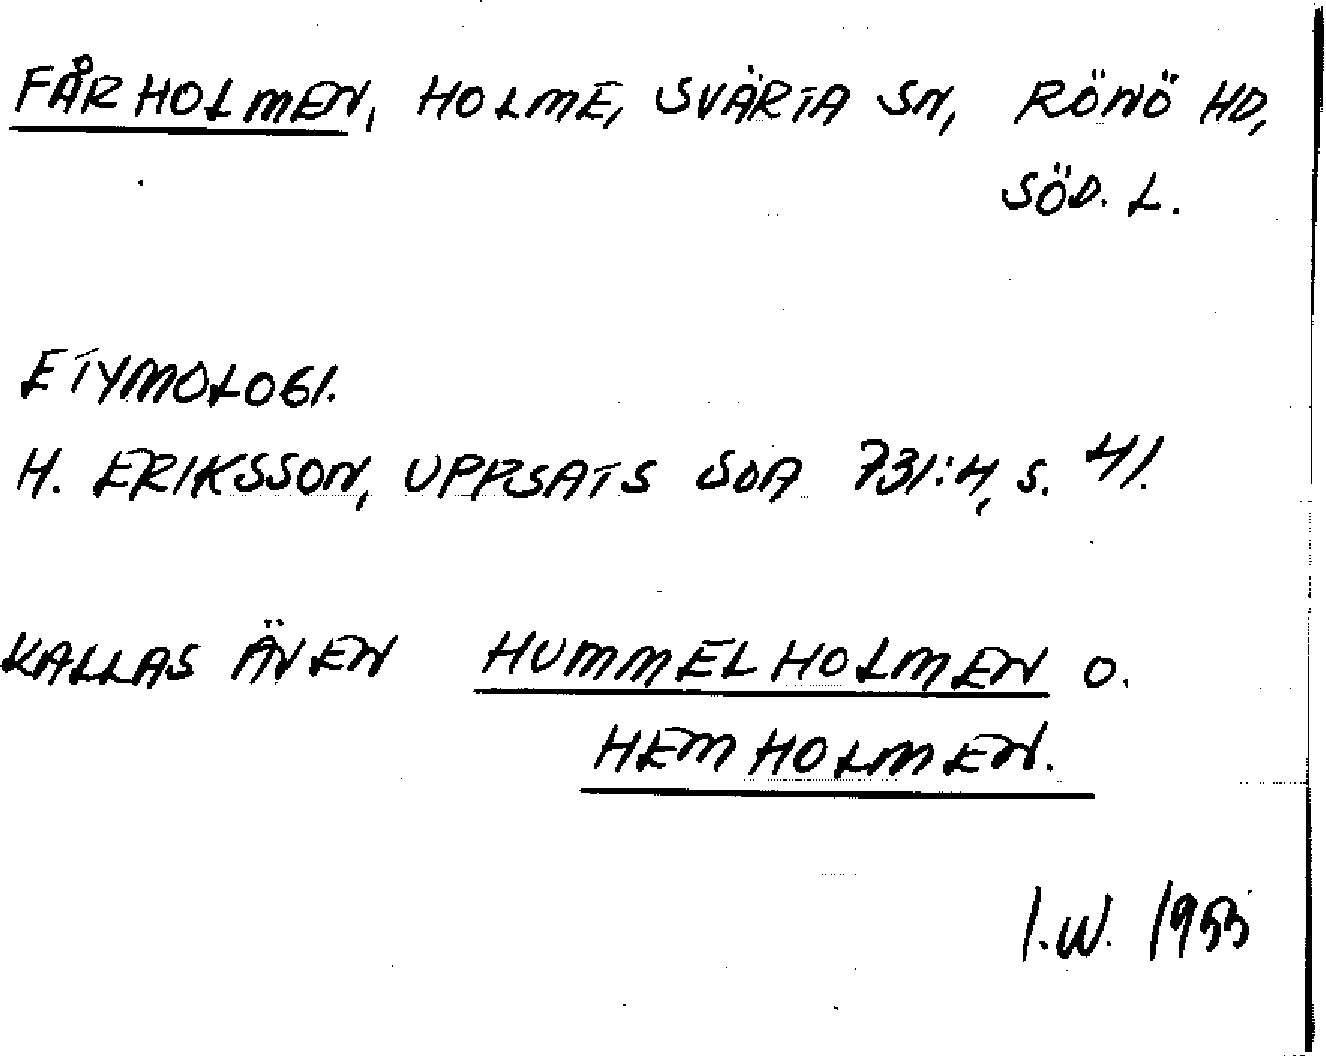 FÅRHOLMEN, HOLME, SVÄRTA SN, RÖNÖ HD,
SÖD. L.
ETYMOLOGI.
H. ERIKSSON, UPPSATS SOA 731:4, S. 41.
KALLAS ÄVEN HUMMELHOLMEN O.
HEMHOLMEN.
I.W. 1955